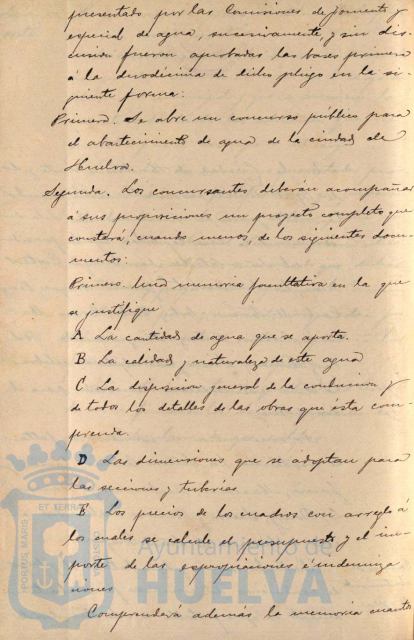 presentado por las Comisiones de fomento y
especial de agua, sucesivamente, y sin dis-
cusion fueron aprobadas las bases primera
á la duodécima de dicho pliego en la si-
guiente forma:
Primera. Se abre un concurso público para
el abastecimiento de agua de la ciudad de
Huelva.
Segunda. Los concursantes deberán acompañar
á sus proposiciones un proyecto completo que
constará, cuando menos, de los siguientes docu-
mentos:
Primero. Una memoria facultativa en la que
se justifique
A La cantidad de agua que se aporta.
B La calidad y naturaleza de este agua
C La disposicion general de la conduccion y
de todos los detalles de las obras que ésta com-
prenda.
D Las dimensiones que se adoptan para
las secciones y tuberias
E Los precios de los cuadros con arreglo á
los cuales se calcule el presupuesto y el im-
porte de las expropiaciones é indemniza
ciones
Comprenderá además la memoria cuanto
PORTUS MARIS ET TERRAE CUSTODIA
Ayuntamiento de
HUELVA